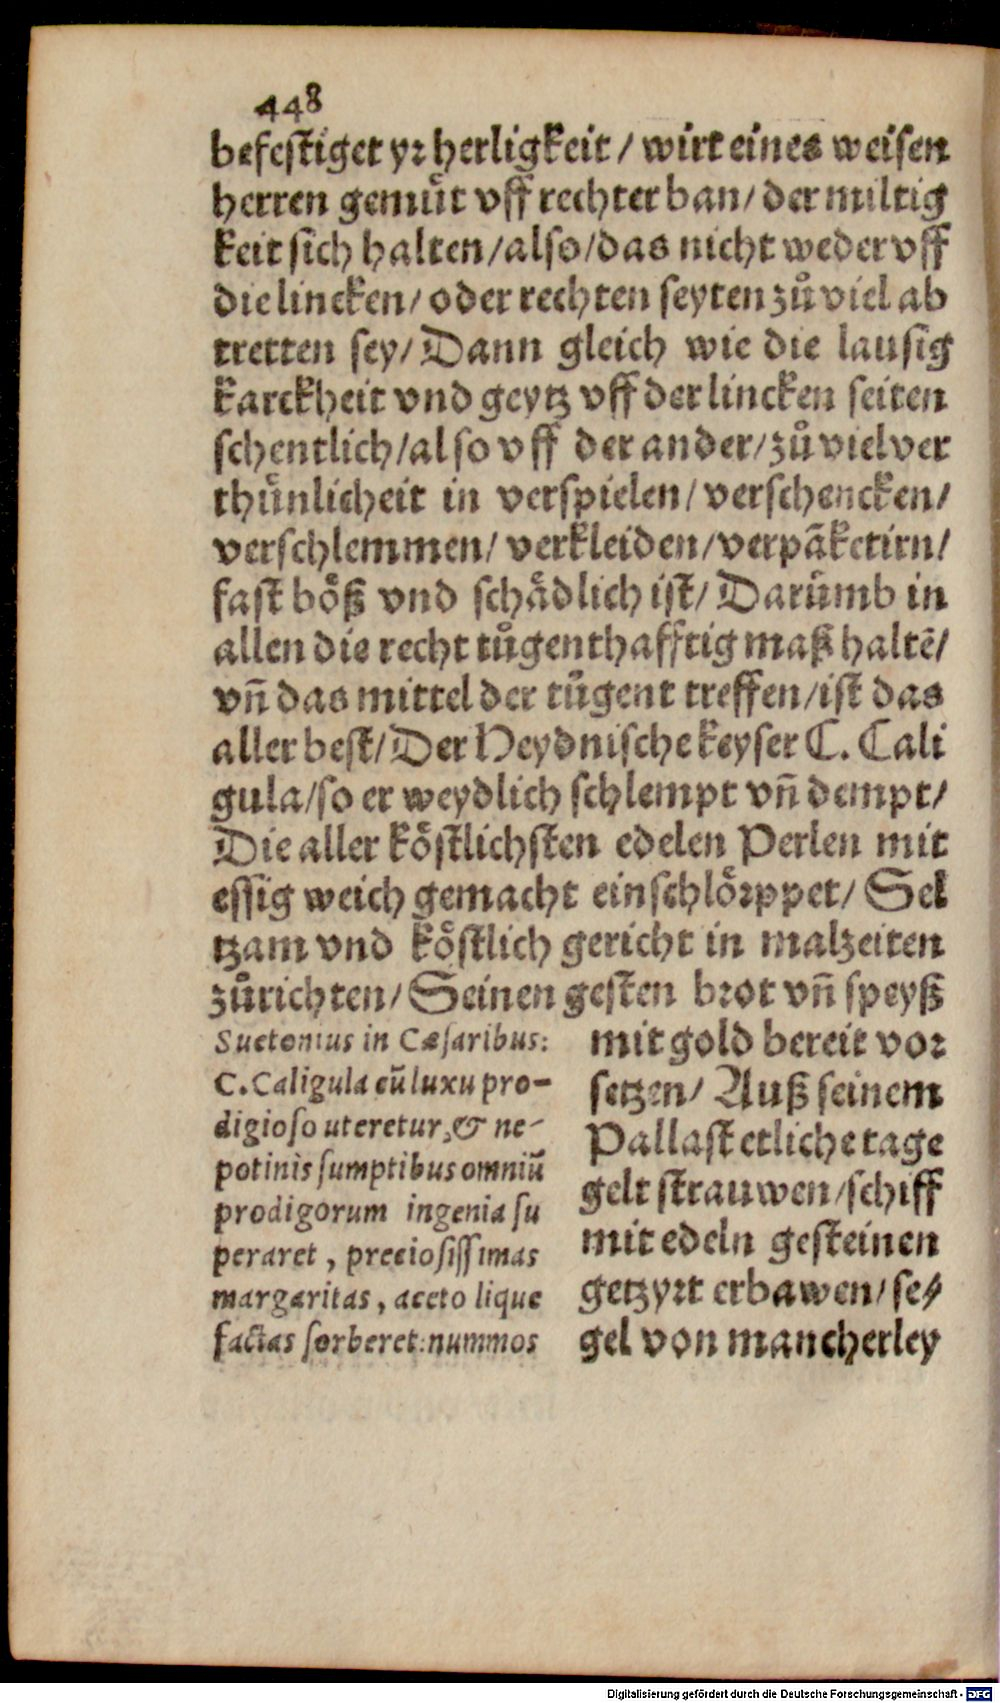 448
befestiget yꝛ herligkeit / wirt eines weisen
herren gemuͤt vff rechter ban / der miltig
keit sich halten / also / das nicht weder vff
die lincken / oder rechten seyten zuͦ viel ab
tretten sey / Dann gleich wie die lausig
karckheit vnd geytz vff der lincken seiten
schentlich / also vff der ander / zuͦ viel ver
thuͤnlicheit in verspielen / verschencken /
verschlemmen / verkleiden / verpãketirn /
fast boͤß vnd schaͤdlich ist / Daruͤmb in
allen die recht tuͤgenthafftig maß haltẽ /
vñ das mittel der tuͤgent treffen / ist das
aller best / Der Heydnische keyser C. Cali
gula / so er weydlich schlempt vñ dempt /
Die aller koͤstlichsten edelen Perlen mit
essig weich gemacht einschloͤꝛppet / Sel
tzam vnd koͤstlich gericht in malzeiten
zuͦrichten / Seinen gesten bꝛot vñ speyß
mit gold bereit voꝛ
setzen / Auß seinem
Pallast etliche tage
gelt strauwen / schiff
mit edeln gesteinen
getzyꝛt erbawen / se⸗
gel von mancherley
Suetonius in Cæsaribus:
C. Caligula cũ luxu pro-
digioso uteretur, & ne-
potinis sumptibus omniũ
prodigorum ingenia su
peraret, preciosissimas
margaritas, aceto lique
factas sorberet: nummos
Digitalisierung gefördert durch die Deutsche Forschungsgemeinschaft - DFG